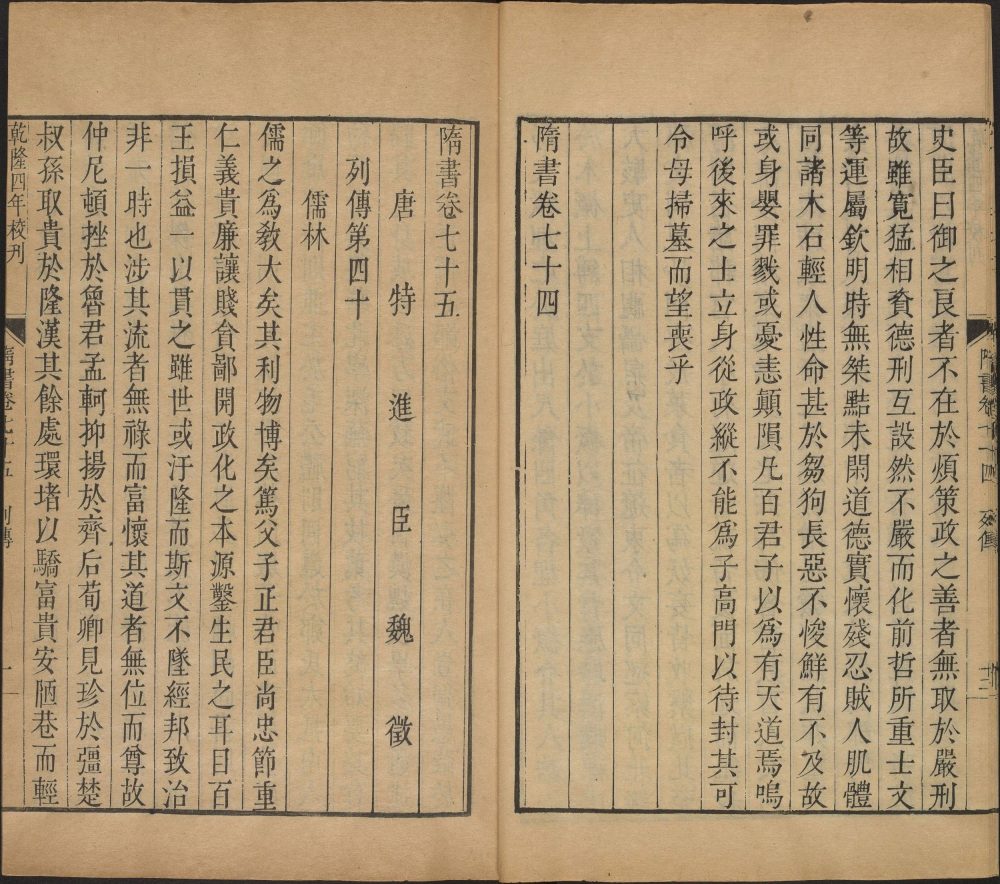 史臣曰御之良者不在於煩策政之善者無取於嚴刑
故雖寬猛相資德刑互設然不嚴而化前哲所重士文
等運屬欽明時無桀黠未閑道德實懷殘忍賊人肌體
同諸木石輕人性命甚於芻狗長惡不悛鮮有不及故
或身嬰罪戮或憂恚顛隕凡百君子以爲有天道焉嗚
呼後來之士立身從政縱不能爲子高門以待封其可
令母掃墓而望喪乎
隋書卷七十四
隋書卷七十五
唐特進臣魏徵
列傳第四十
儒林
儒之爲教大矣其利物博矣篤父子正君臣尚忠節重
仁義貴廉讓賤貪鄙開政化之本源鑿生民之耳目百
王損益一以貫之雖世或汙隆而斯文不墜經邦致治
非一時也涉其流者無祿而富懷其道者無位而尊故
仲尼頓挫於魯君孟軻抑揚於齊后荀卿見珍於彊楚
叔孫取貴於隆漢其餘處環堵以驕富貴安陋巷而輕
乾隆四年校刊
隋書卷七十五 列傳 一